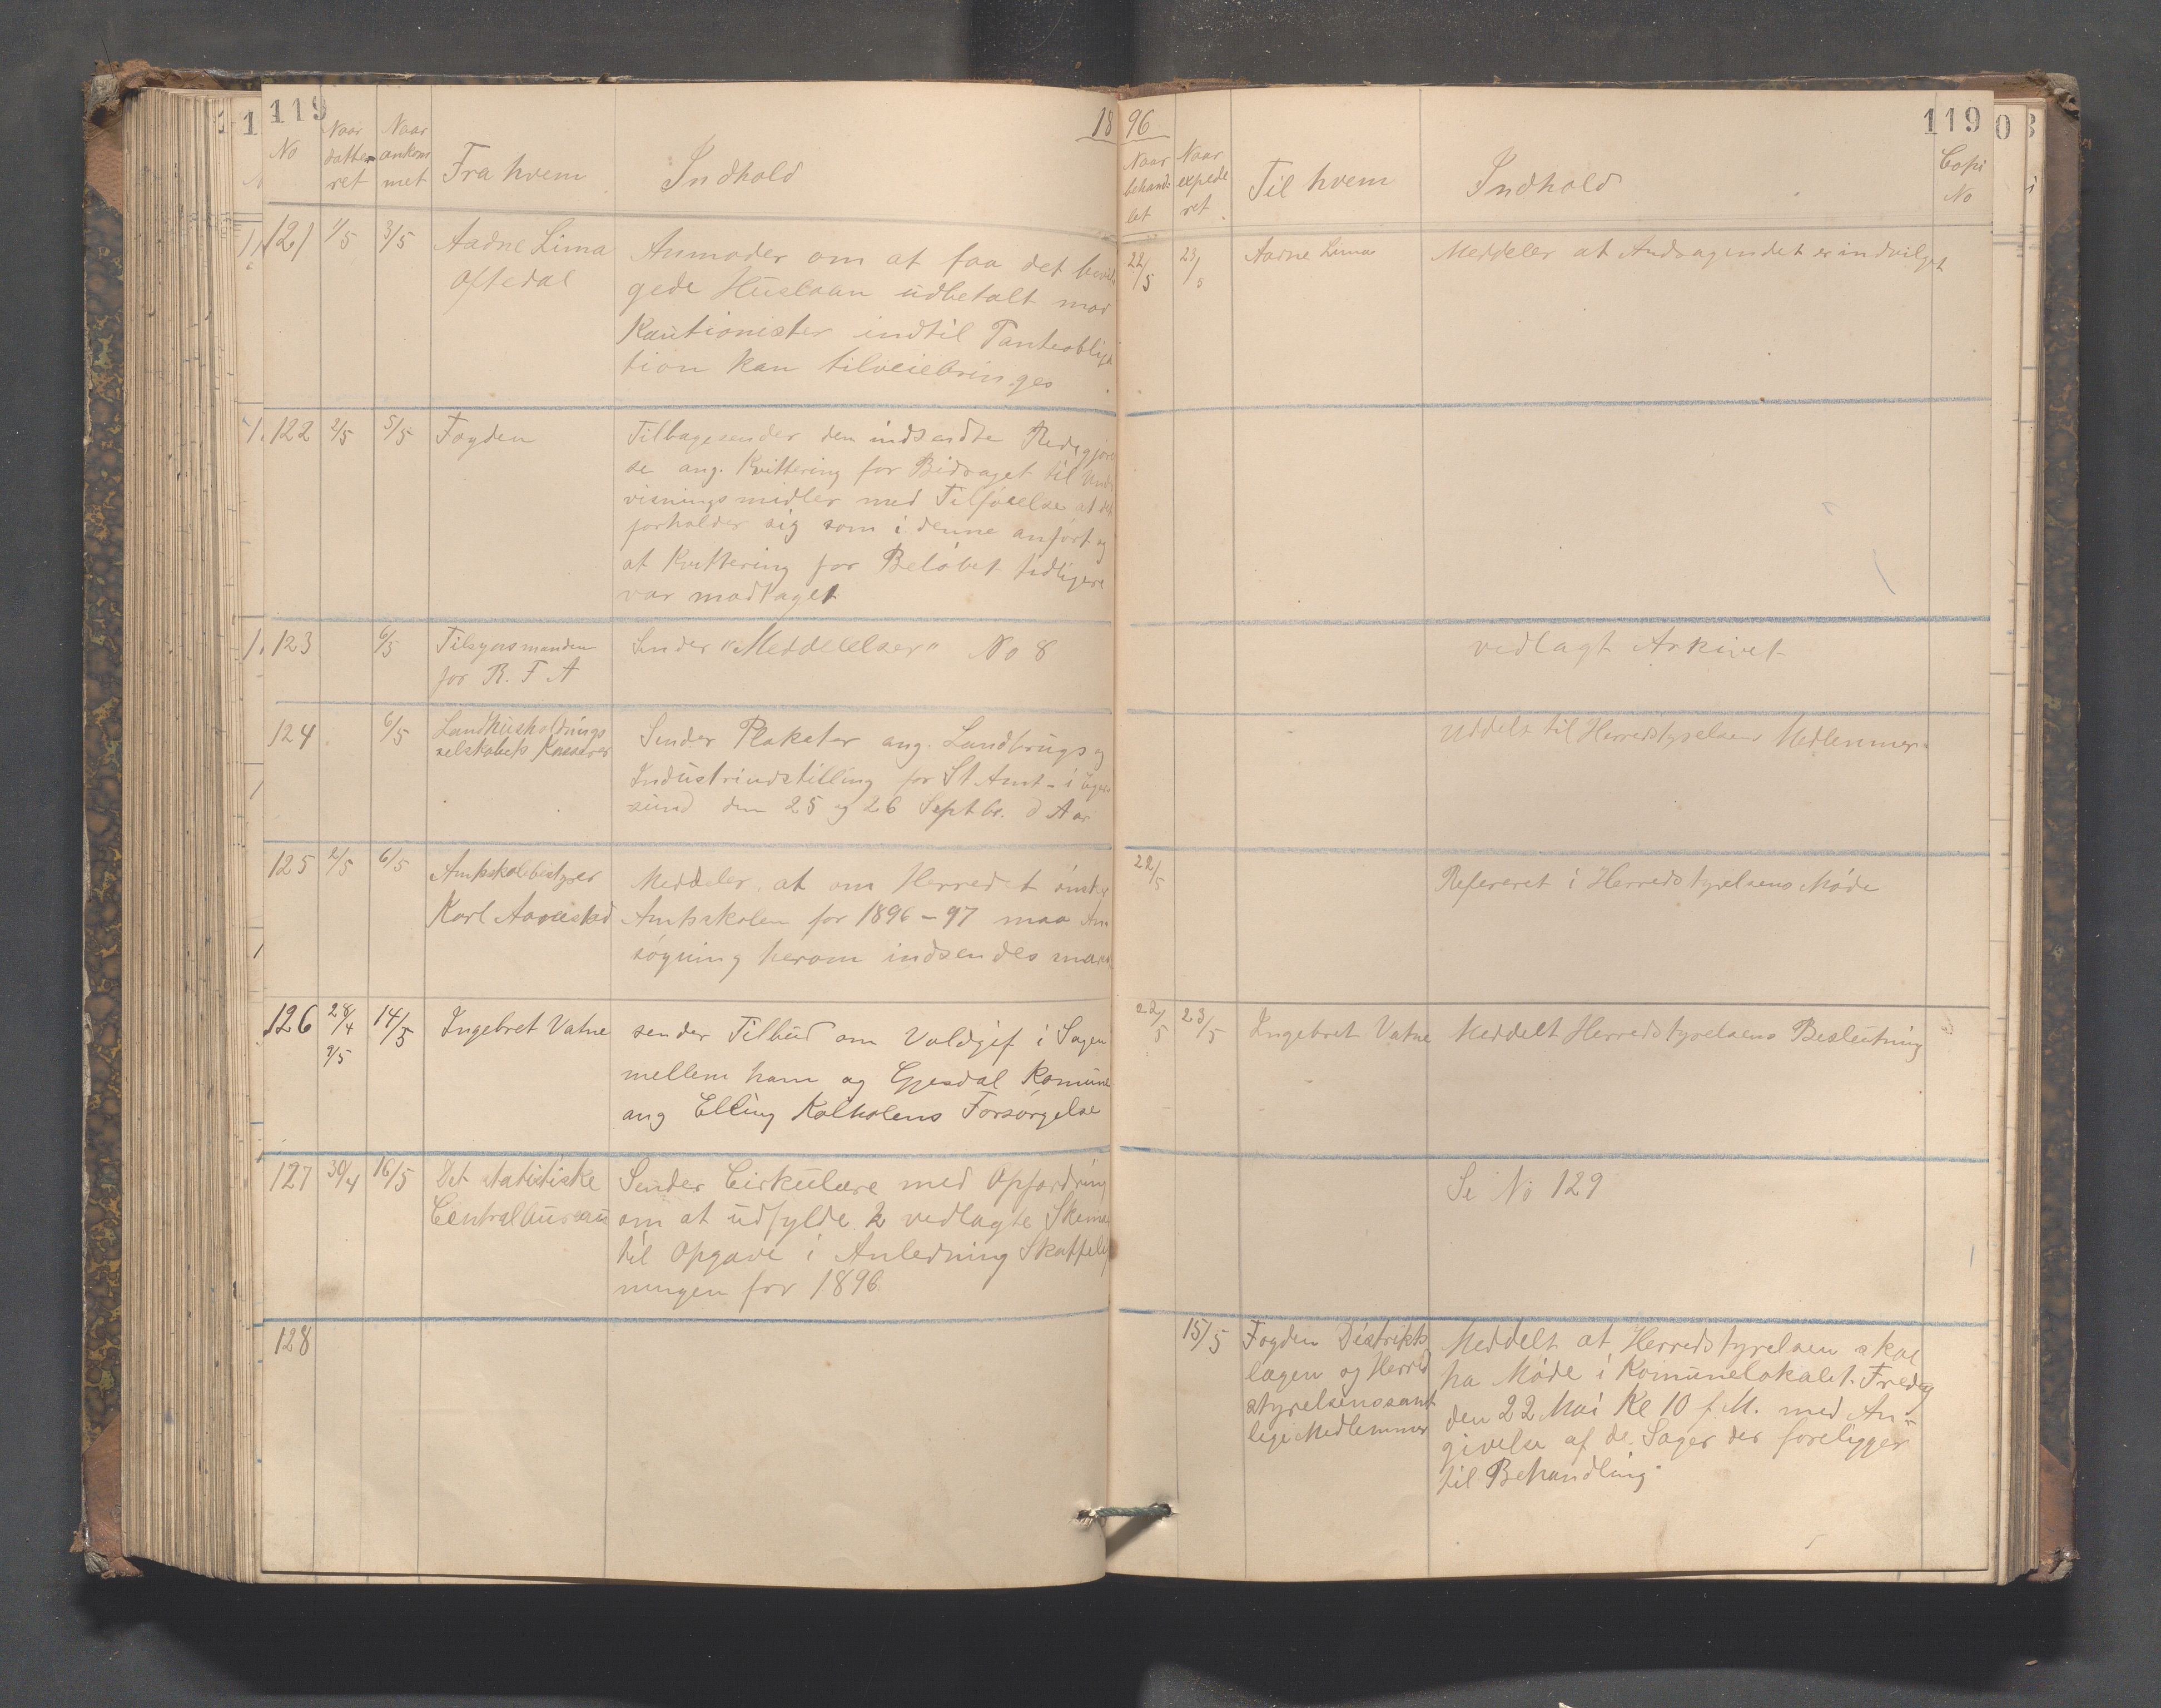 119
18 96
119
No
Naar datteret
Naar ankommet
Fra hvem
Indhold
Naar behandlet
Naar expederet
Til hvem
Indhold
Copi No
121 1/5 3/5
Aadne Lima
Oftedal
Anmoder om at faa det bevil
gede Huslaan udbetalt mod
Kautionister indtil Panteobliga
tion kan tilveiebringes
22/5 23/5
Aadne Lima
Meddeler at Andragendet er indvilget
122 2/5 5/5
Fogden
Tilbagesender den indsendte Redegjørel
se ang. Kvittering for Bidraget til Under
visningsmidler med Tilføielse at det
forholder sig som i denne anført og
at Kvittering for Beløbet tidligere
var modtaget
123 6/5
Tilsynsmanden
for R. F A
Sender "Meddelelser" No 8
vedlagt Arkivet
124 6/5
Landhusholdnings
selskabets Kasserer
Sender Plakater ang. Landbrugs og
Industriudstilling for St Amt i Eger
sund den 25 og 26 Septbr. d Aar
Uddelt til Herredstyrelsens Medlemmer
125 2/5 6/5
Amtsskolebestyrer
Karl Aarrestad
Meddeler at om Herredet ønsker
Amtsskolen for 1896-97 maa An
søgning herom indsendes
22/5
Refereret i Herredstyrelsens Møde
126 28/4 9/5 14/5
Ingebret Vatne
sender Tilbud om Voldgift i Sagen
mellem ham og Gjesdal Komune
ang Elling Kalholens Forsørgelse
22/5 23/5
Ingebret Vatne
Meddelt Herredstyrelsens Beslutning
127 30/4 16/5
Det statistiske
Centralbureau
Sender Cirkulære med Opfordring
om at udfylde 2 vedlagte Skema
til Opgave i Anledning Skattelig
ningen for 1896
Se No 129
128
15/5
Fogden Distrikts
lægen og Herred
styrelsens samt
lige Medlemmer
Meddelt at Herredstyrelsen skal
ha Møde i Komunelokalet Fredag
den 22 Mai Kl 10 f M. med An-
givelse af de Sager der foreligger
til Behandling